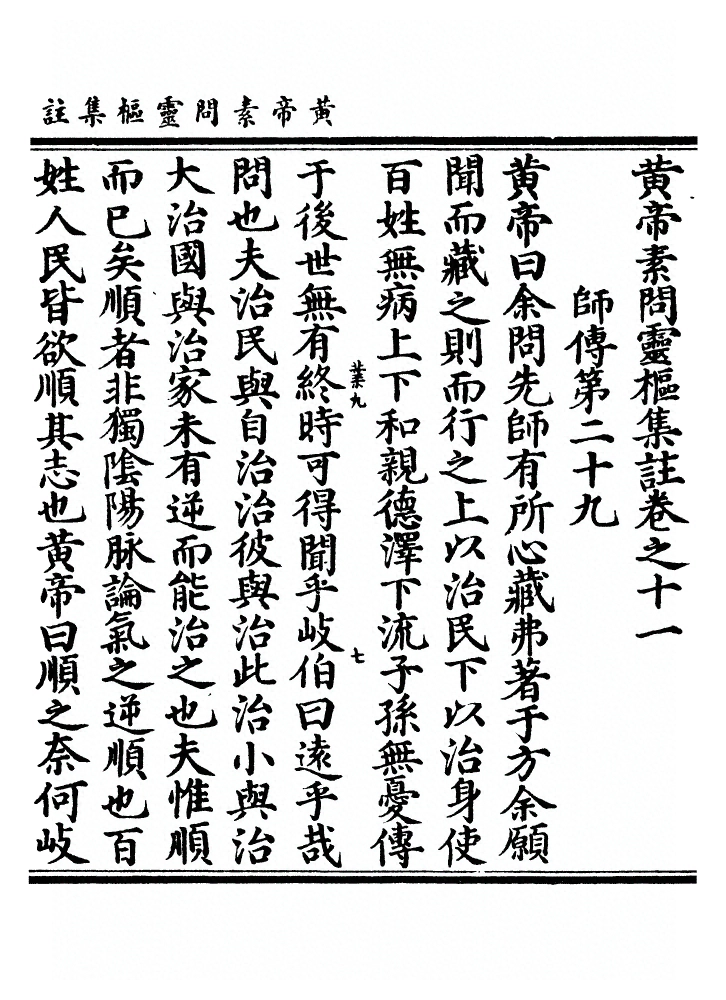 黄帝素問靈樞集註
黄帝素問靈樞集註卷之十一
師傳第二十九
黄帝曰余聞先師有所心藏弗著于方余願
聞而藏之則而行之上以治民下以治身使
百姓無病上下和親德澤下流子孫無憂傳
于後世無有終時可得聞乎岐伯曰遠乎哉
問也夫治民與自治治彼與治此治小與治
大治國與治家未有逆而能治之也夫惟順
而已矣順者非獨陰陽脉論氣之逆順也百
姓人民皆欲順其志也黄帝曰順之奈何岐
業九
七